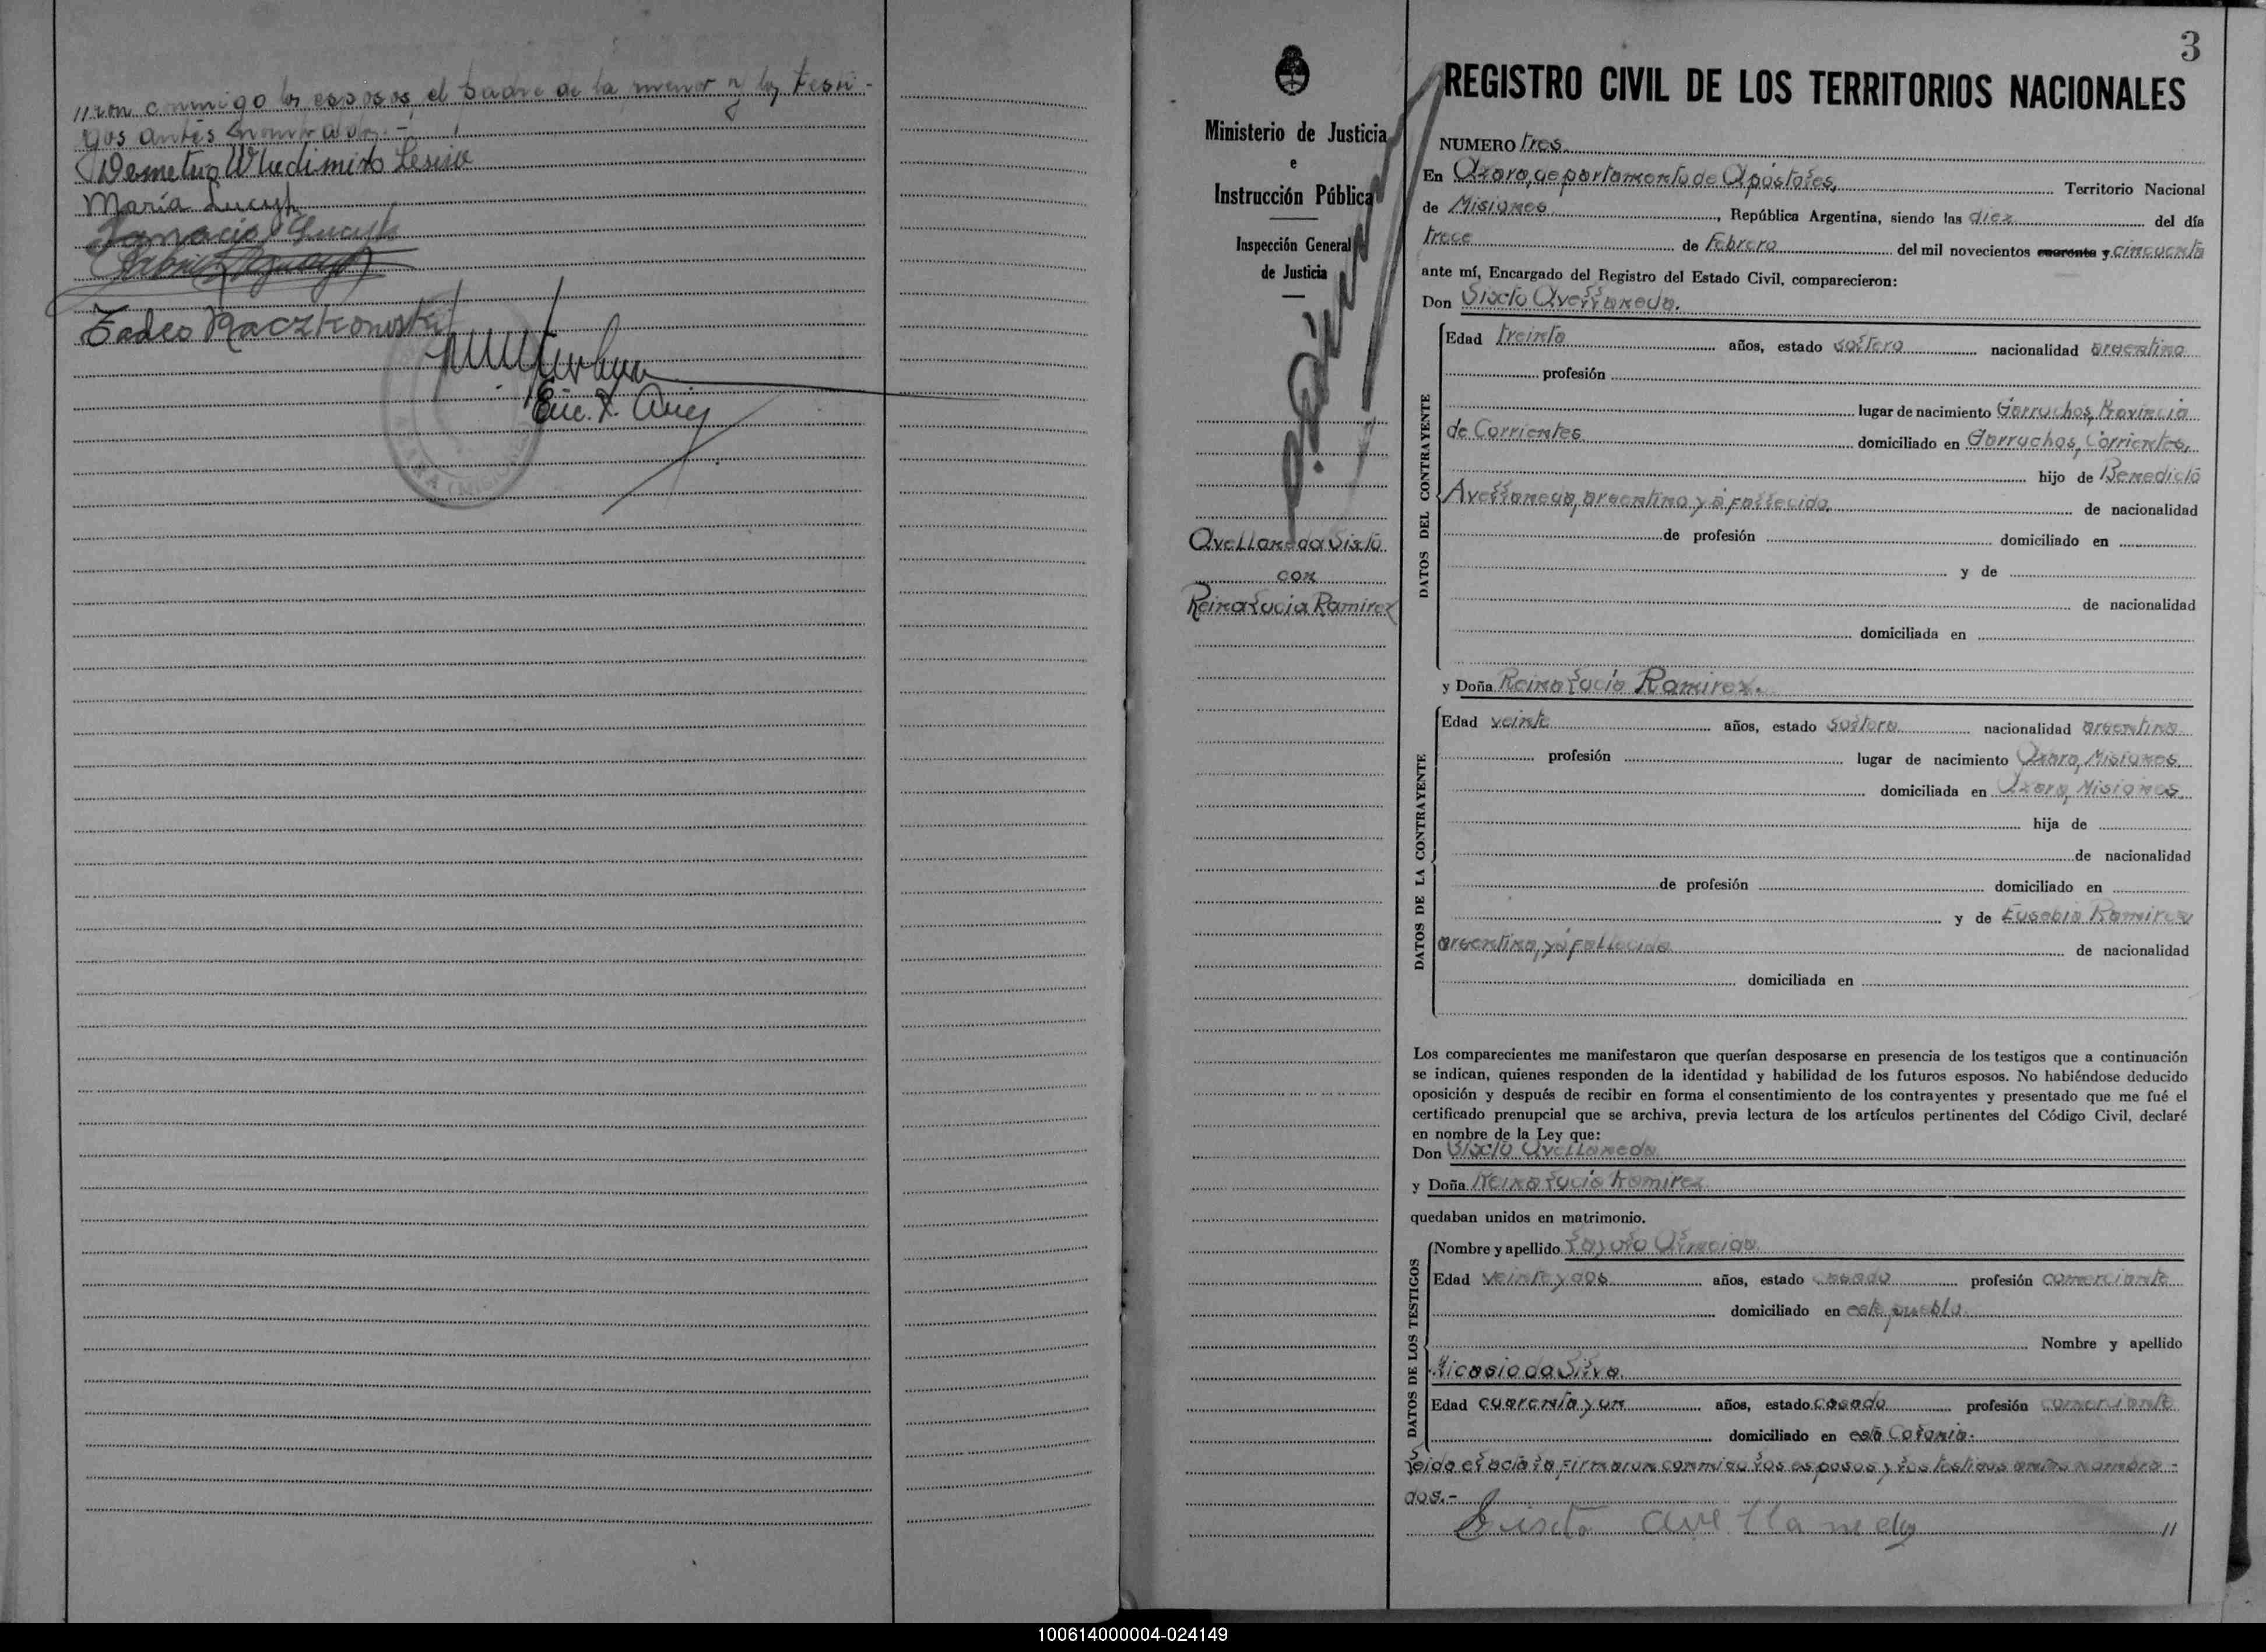 //ron conmigo los esposos, el padre de la menor y los testi-
gos antes nombrados.-
Demetrio Wladimiro Lesiw
María Lucyk
Ignacio Lucyk
Tadeo Raczkowski
Enc. R. Civ.
3
Ministerio de Justicia
e
Instrucción Pública
Inspección General
de Justicia
Avellaneda Sixto
con
Reina Lucia Ramirez
REGISTRO CIVIL DE LOS TERRITORIOS NACIONALES
NUMERO tres.
En Azara, departamento de Apóstoles, Territorio Nacional
de Misiones, República Argentina, siendo las diez del día
trece de Febrero del mil novecientos cuarenta y cincuenta
ante mí, Encargado del Registro del Estado Civil, comparecieron:
Don Sixto Avellaneda.
DATOS DEL CONTRAYENTE
Edad treinta años, estado soltero nacionalidad argentina
profesión
lugar de nacimiento Garruchos, Provincia
de Corrientes domiciliado en Garruchos, Corrientes,
hijo de Benedicto
Avellaneda, argentino, yá fallecido. de nacionalidad
de profesión domiciliado en
y de
de nacionalidad
domiciliada en
y Doña Reina Lucía Ramirez.
DATOS DE LA CONTRAYENTE
Edad veinte años, estado soltera nacionalidad argentina
profesión lugar de nacimiento Azara, Misiones
domiciliada en Azara, Misiones
hija de
de nacionalidad
de profesión domiciliado en
y de Eusebia Ramirez
argentina, yá fallecida de nacionalidad
domiciliada en
Los comparecientes me manifestaron que querían desposarse en presencia de los testigos que a continuación
se indican, quienes responden de la identidad y habilidad de los futuros esposos. No habiéndose deducido
oposición y después de recibir en forma el consentimiento de los contrayentes y presentado que me fué el
certificado prenupcial que se archiva, previa lectura de los artículos pertinentes del Código Civil, declaré
en nombre de la Ley que:
Don Sixto Avellaneda
y Doña Reina Lucía Ramirez
quedaban unidos en matrimonio.
DATOS DE LOS TESTIGOS
Nombre y apellido
Edad veinte y dos años, estado casado profesión comerciante
domiciliado en este pueblo.
Nombre y apellido
Nicasio da Silva.
Edad cuarenta y un años, estado casado profesión comerciante
domiciliado en está Colonia.
Leida el acta la firmaron conmigo los esposos y los testigos antes nombra-
dos.-
Sixto avellaneda //
100614000004-024149